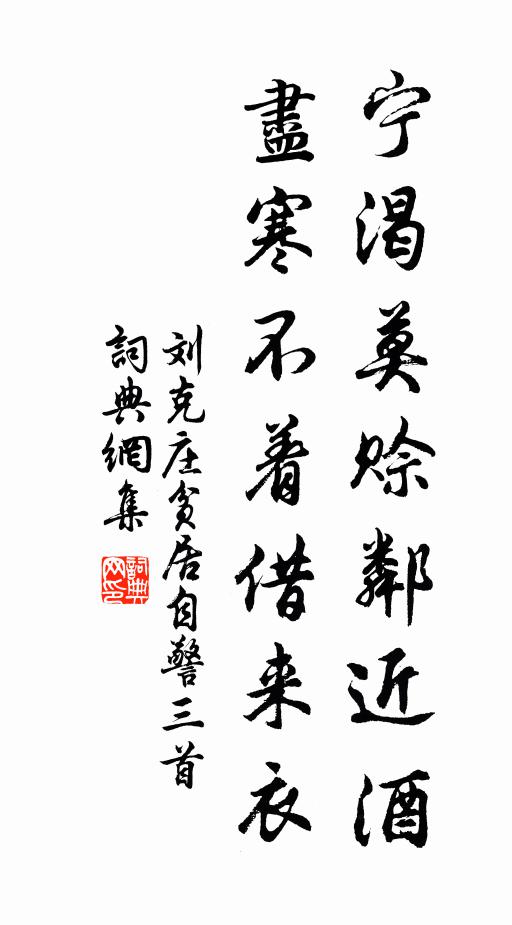 宁渴莫赊鄰近酒
盡寒不着借来衣
刘克庄贫居自警三首
詞典網集
詞典网印